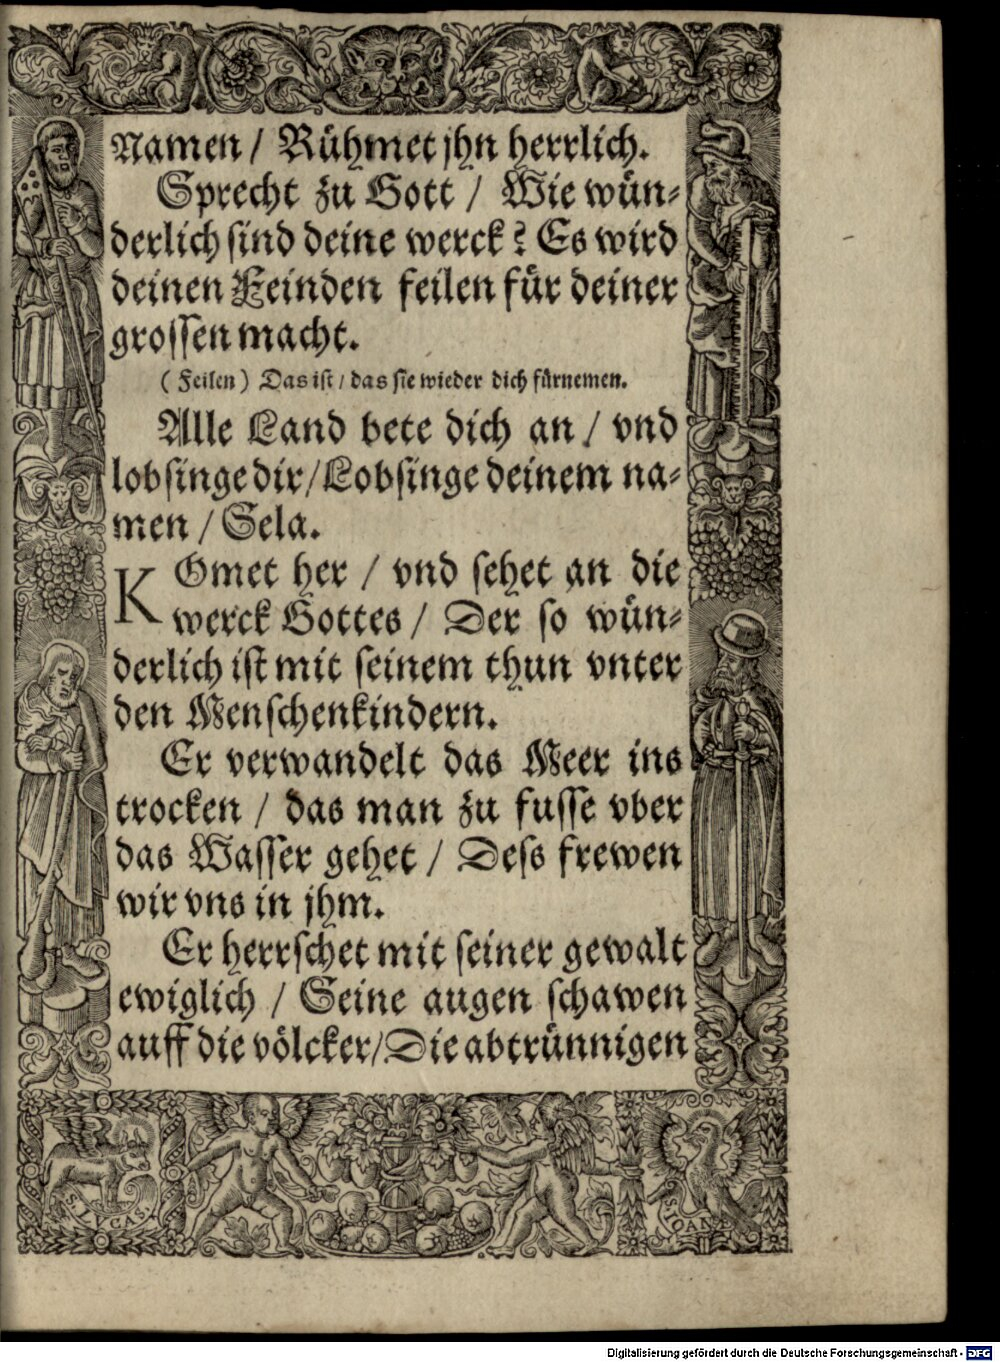 Namen / Rühmet jhn herrlich.
Sprecht zu Gott / Wie wün⸗
derlich sind deine werck? Es wird
deinen Feinden feilen für deiner
grossen macht.
( Feilen ) Das ist / das sie wieder dich fürnemen.
Alle Land bete dich an / vnd
lobsinge dir / Lobsinge deinem na⸗
men / Sela.
KOmet her / vnd sehet an die
werck Gottes / Der so wün⸗
derlich ist mit seinem thun vnter
den Menschenkindern.
Er verwandelt das Meer ins
trocken / das man zu fusse vber
das Wasser gehet / Dess frewen
wir vns in jhm.
Er herrschet mit seiner gewalt
ewiglich / Seine augen schawen
auff die völcker / Die abtrünnigen
S. LVCAS.
S. IOAN
Digitalisierung gefördert durch die Deutsche Forschungsgemeinschaft - DFG